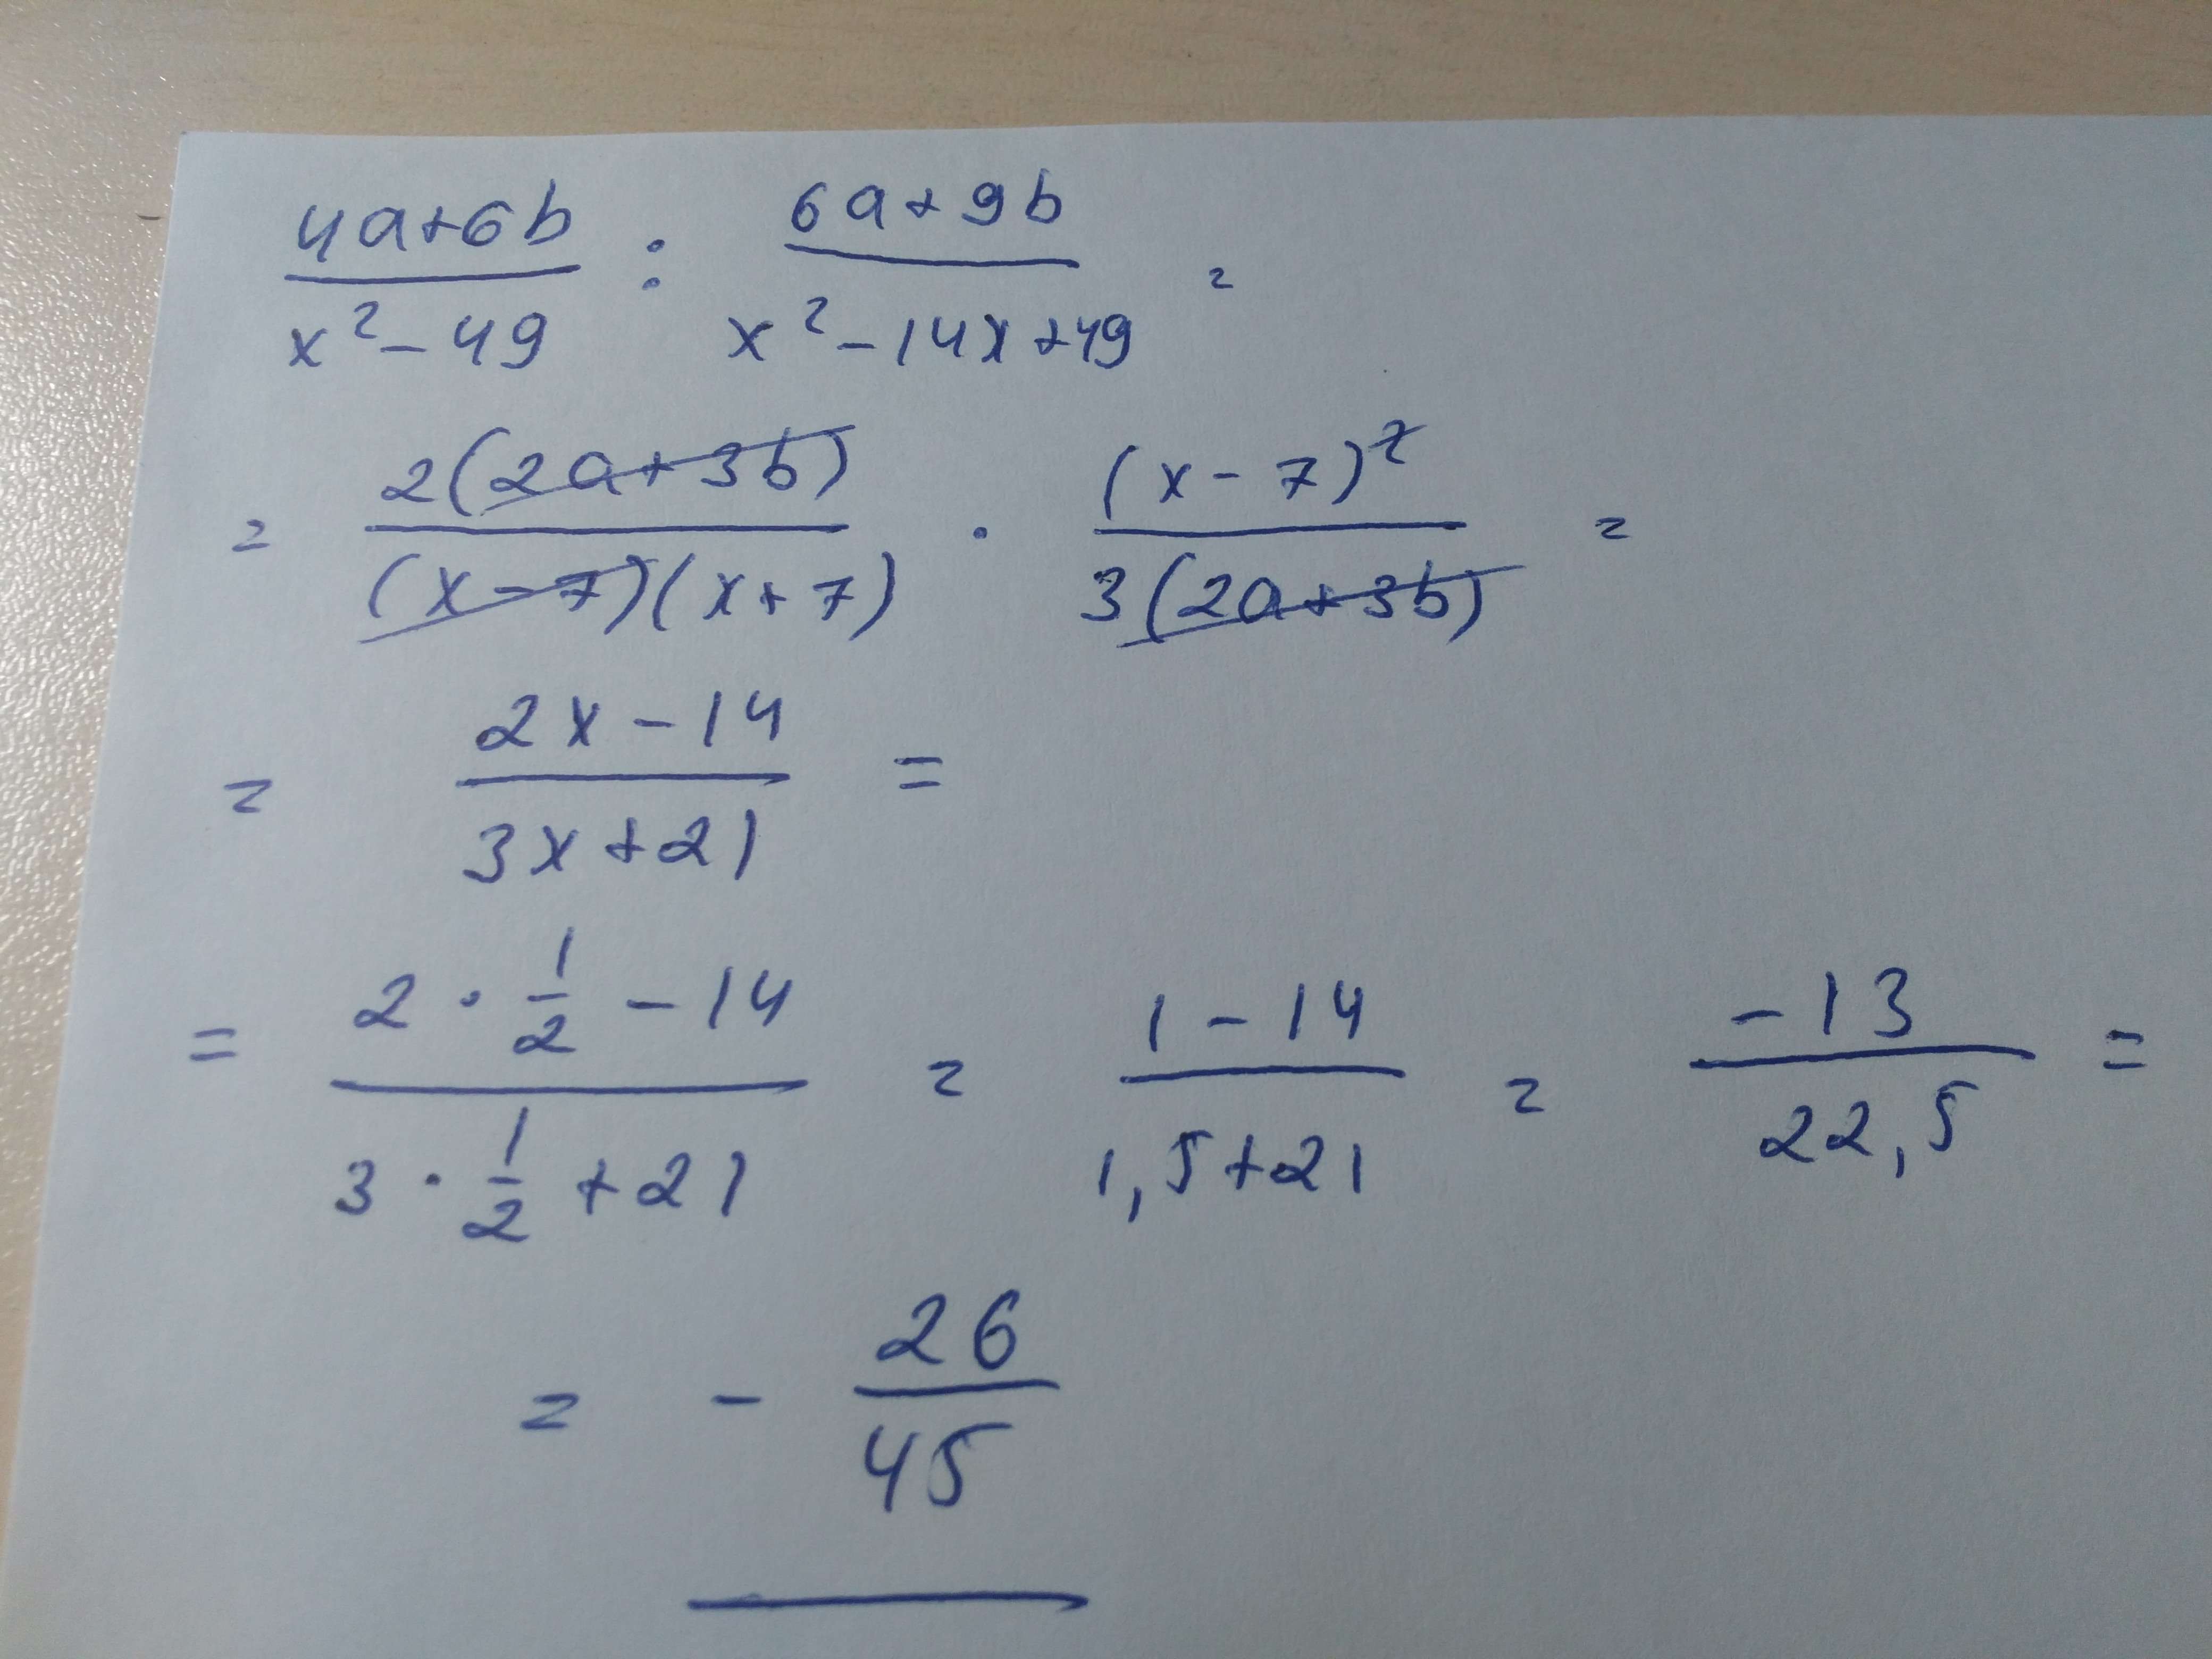 (4a+6b)/(x²-49) : (6a+9b)/(x²-14x+49) =
= 2(2a+3b)/((x-7)(x+7)) · (x-7)²/(3(2a+3b)) =
= (2x-14)/(3x+21) =
= (2·1/2-14)/(3·1/2+21) = (1-14)/(1,5+21) = -13/22,5 =
= - 26/45